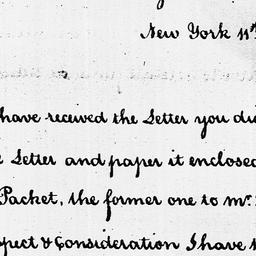 New York 11th
have received the Letter you di
Letter and paper it enclosed
Packet, the former one to mr.
spect & Consideration I have t